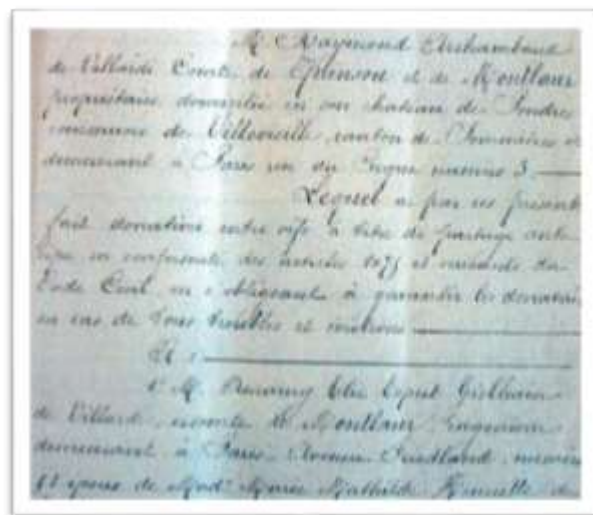 M. Raymond Archambaud
de Villardi Comte de Quinson et de Montlaur
propriétaire, domicilié en son chateau de Pondres
commune de Villevieille, canton de Sommières et
demeurant à Paris rue du Cirque numéro 3.
Lequel a par ces présent
fait donation entre vifs à titre de partage anti
cipé en conformité des articles 1075 et suivants du
Code Civil, en s'obligeant à garantir les donatai
en cas de tous troubles et évictions
A :
1° M. Elie
de Villardi, vicomte de Montlaur,
demeurant à Paris, Avenue Friedland, numéro
époux de Mad. Marie Mathilde Henriette de